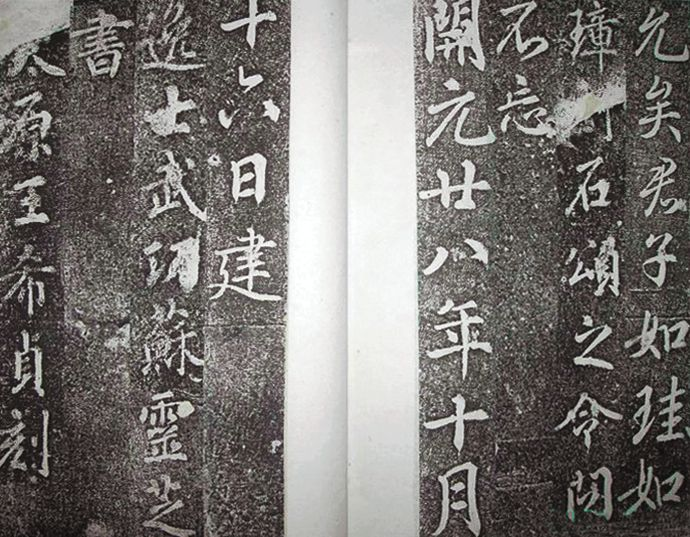 允矣君子如珪如
璋石頌之令問
不忘
開元廿八年十月
十六日建
逸士武功蘇靈芝
書
太原王希貞刻